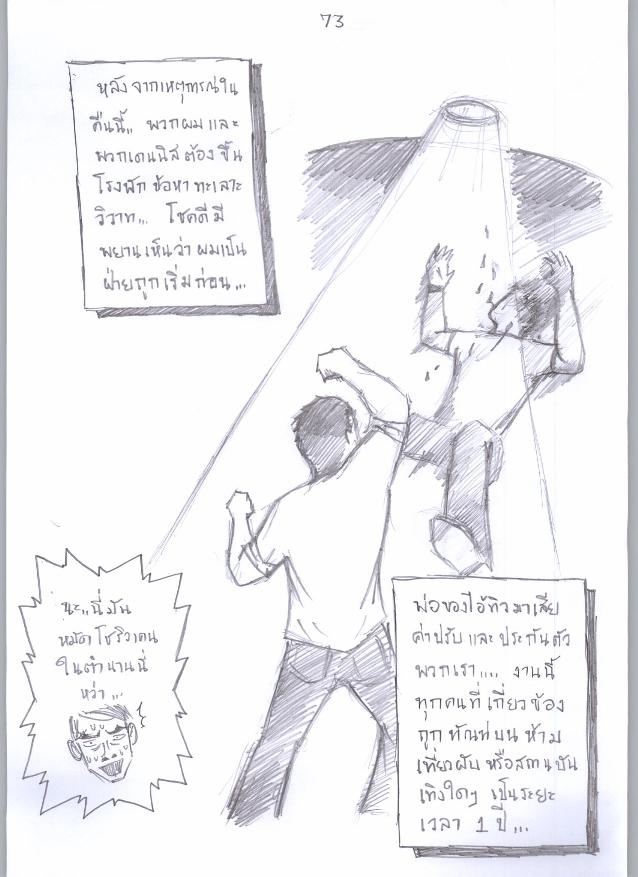 73
หลังจากเหตุการณ์ใน
คืนนี้... พวกผม และ
พวกเดนนิส ต้อง ขึ้น
โรงพัก ข้อหา ทะเลาะ
วิวาท... โชคดี มี
พยาน เห็นว่า ผมเป็น
ฝ่ายถูก เริ่ม ก่อน...
นะ..นี่มัน
หมัด โชริวเคน
ในตำนานนี่
หว่า...
พ่อของไอ้ทิวมาเสีย
ค่าปรับ และ ประกันตัว
พวกเรา.... งานนี้
ทุกคนที่ เกี่ยวข้อง
ถูก ทัณฑ์บน ห้าม
เที่ยวผับ หรือสถานบัน
เทิงใดๆ เป็นระยะ
เวลา 1 ปี...